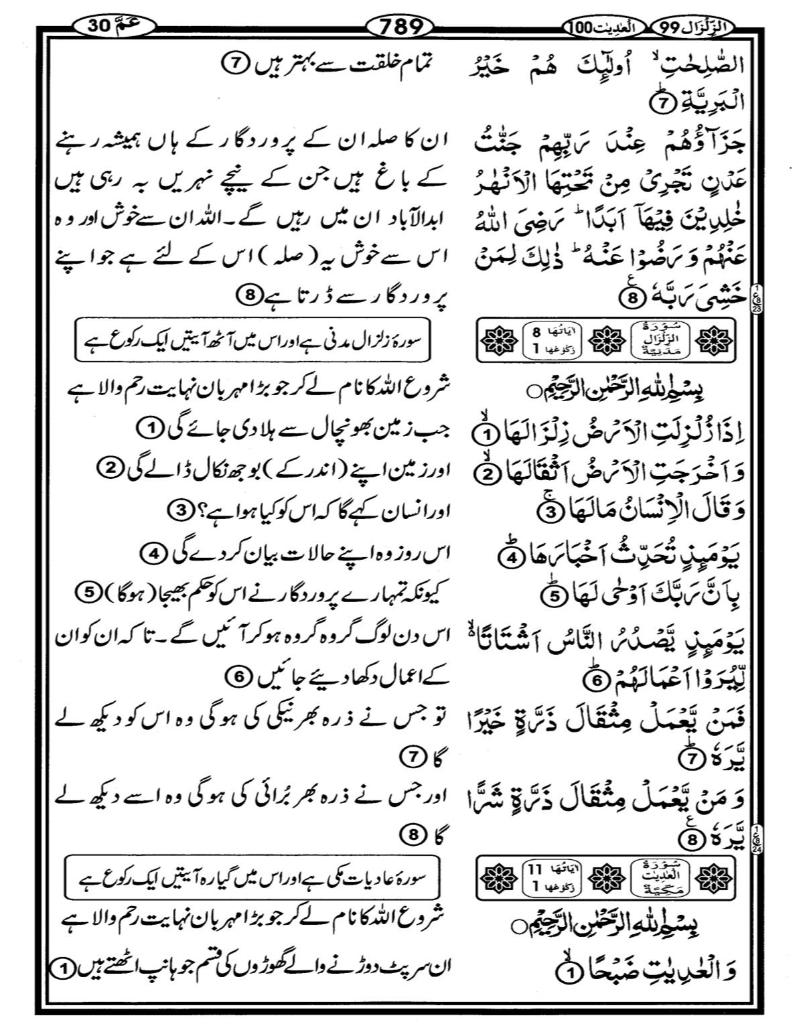 الزّلزال 99 العٰدیٰت 100 789 عمّ 30
الصّٰلِحٰتِ ۙ اُولٰٓئِكَ هُمْ خَيْرُ
الْبَرِيَّةِ ؕ 7
تمام خلقت سے بہتر ہیں 7
جَزَآؤُهُمْ عِنْدَ رَبِّهِمْ جَنّٰتُ
عَدْنٍ تَجْرِيْ مِنْ تَحْتِهَا الْاَنْهٰرُ
خٰلِدِيْنَ فِيْهَاۤ اَبَدًا ؕ رَضِيَ اللّٰهُ
عَنْهُمْ وَرَضُوْا عَنْهُ ؕ ذٰلِكَ لِمَنْ
خَشِيَ رَبَّهٗ 8 ع
ان کا صلہ ان کے پروردگار کے ہاں ہمیشہ رہنے
کے باغ ہیں جن کے نیچے نہریں بہ رہی ہیں
ابدالآباد ان میں رہیں گے۔ اللہ ان سے خوش اور وہ
اس سے خوش یہ (صلہ) اس کے لئے ہے جو اپنے
پروردگار سے ڈرتا ہے 8
سُوْرَةُ الزّلْزَال مَدَنِيَّة اٰيَاتُهَا 8 رُكُوْعُهَا 1
سورۂ زلزال مدنی ہے اور اس میں آٹھ آیتیں ایک رکوع ہے
بِسْمِ اللّٰهِ الرَّحْمٰنِ الرَّحِيْمِ ○
شروع اللہ کا نام لے کر جو بڑا مہربان نہایت رحم والا ہے
اِذَا زُلْزِلَتِ الْاَرْضُ زِلْزَالَهَا ۙ 1
جب زمین بھونچال سے ہلا دی جائے گی 1
وَاَخْرَجَتِ الْاَرْضُ اَثْقَالَهَا ۙ 2
اور زمین اپنے (اندر کے) بوجھ نکال ڈالے گی 2
وَقَالَ الْاِنْسَانُ مَالَهَا ۚ 3
اور انسان کہے گا کہ اس کو کیا ہوا ہے؟ 3
يَوْمَئِذٍ تُحَدِّثُ اَخْبَارَهَا ؕ 4
اس روز وہ اپنے حالات بیان کر دے گی 4
بِاَنَّ رَبَّكَ اَوْحٰى لَهَا ؕ 5
کیونکہ تمہارے پروردگار نے اس کو حکم بھیجا (ہوگا) 5
يَوْمَئِذٍ يَّصْدُرُ النَّاسُ اَشْتَاتًا ۙ
لِّيُرَوْا اَعْمَالَهُمْ ؕ 6
اس دن لوگ گروہ گروہ ہو کر آئیں گے۔ تا کہ ان کو ان
کے اعمال دکھا دیئے جائیں 6
فَمَنْ يَّعْمَلْ مِثْقَالَ ذَرَّةٍ خَيْرًا
يَّرَهٗ ؕ 7
تو جس نے ذرہ بھر نیکی کی ہوگی وہ اس کو دیکھ لے
گا 7
وَمَنْ يَّعْمَلْ مِثْقَالَ ذَرَّةٍ شَرًّا
يَّرَهٗ 8 ع
اور جس نے ذرہ بھر بُرائی کی ہوگی وہ اسے دیکھ لے
گا 8
سُوْرَةُ الْعٰدِيٰت مَكِّيَّة اٰيَاتُهَا 11 رُكُوْعُهَا 1
سورۂ عادیات مکی ہے اور اس میں گیارہ آیتیں ایک رکوع ہے
بِسْمِ اللّٰهِ الرَّحْمٰنِ الرَّحِيْمِ ○
شروع اللہ کا نام لے کر جو بڑا مہربان نہایت رحم والا ہے
وَالْعٰدِيٰتِ ضَبْحًا ۙ 1
ان سرپٹ دوڑنے والے گھوڑوں کی قسم جو ہانپ اٹھتے ہیں 1